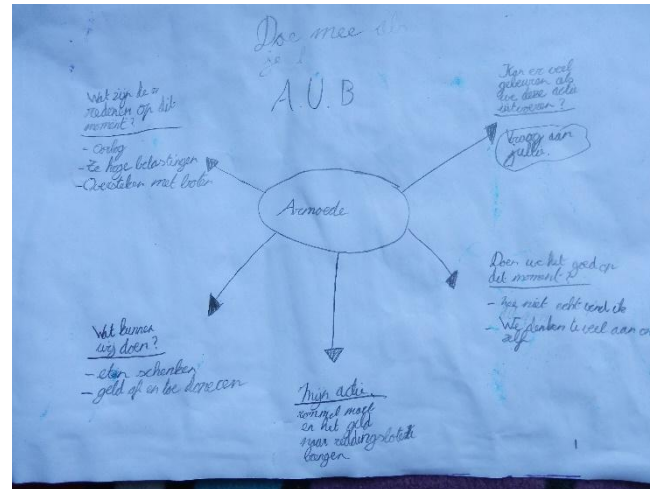 Doe mee als
je
A.U.B
Wat zijn de
redenen op dit
moment?
- Oorlog
- Te hoge belastingen
- Oversteken met boten
Kan er veel
gebeuren als
we deze actie
uitvoeren?
Vraag aan
jullie.
Armoede
Doen we het goed op
dit moment?
- niet echt vind ik
- Wij denken te veel aan
zelf
Wat kunnen
wij doen?
- eten schenken
- geld af en toe doneren
Mijn actie
rommel markt
en het geld
naar
brengen